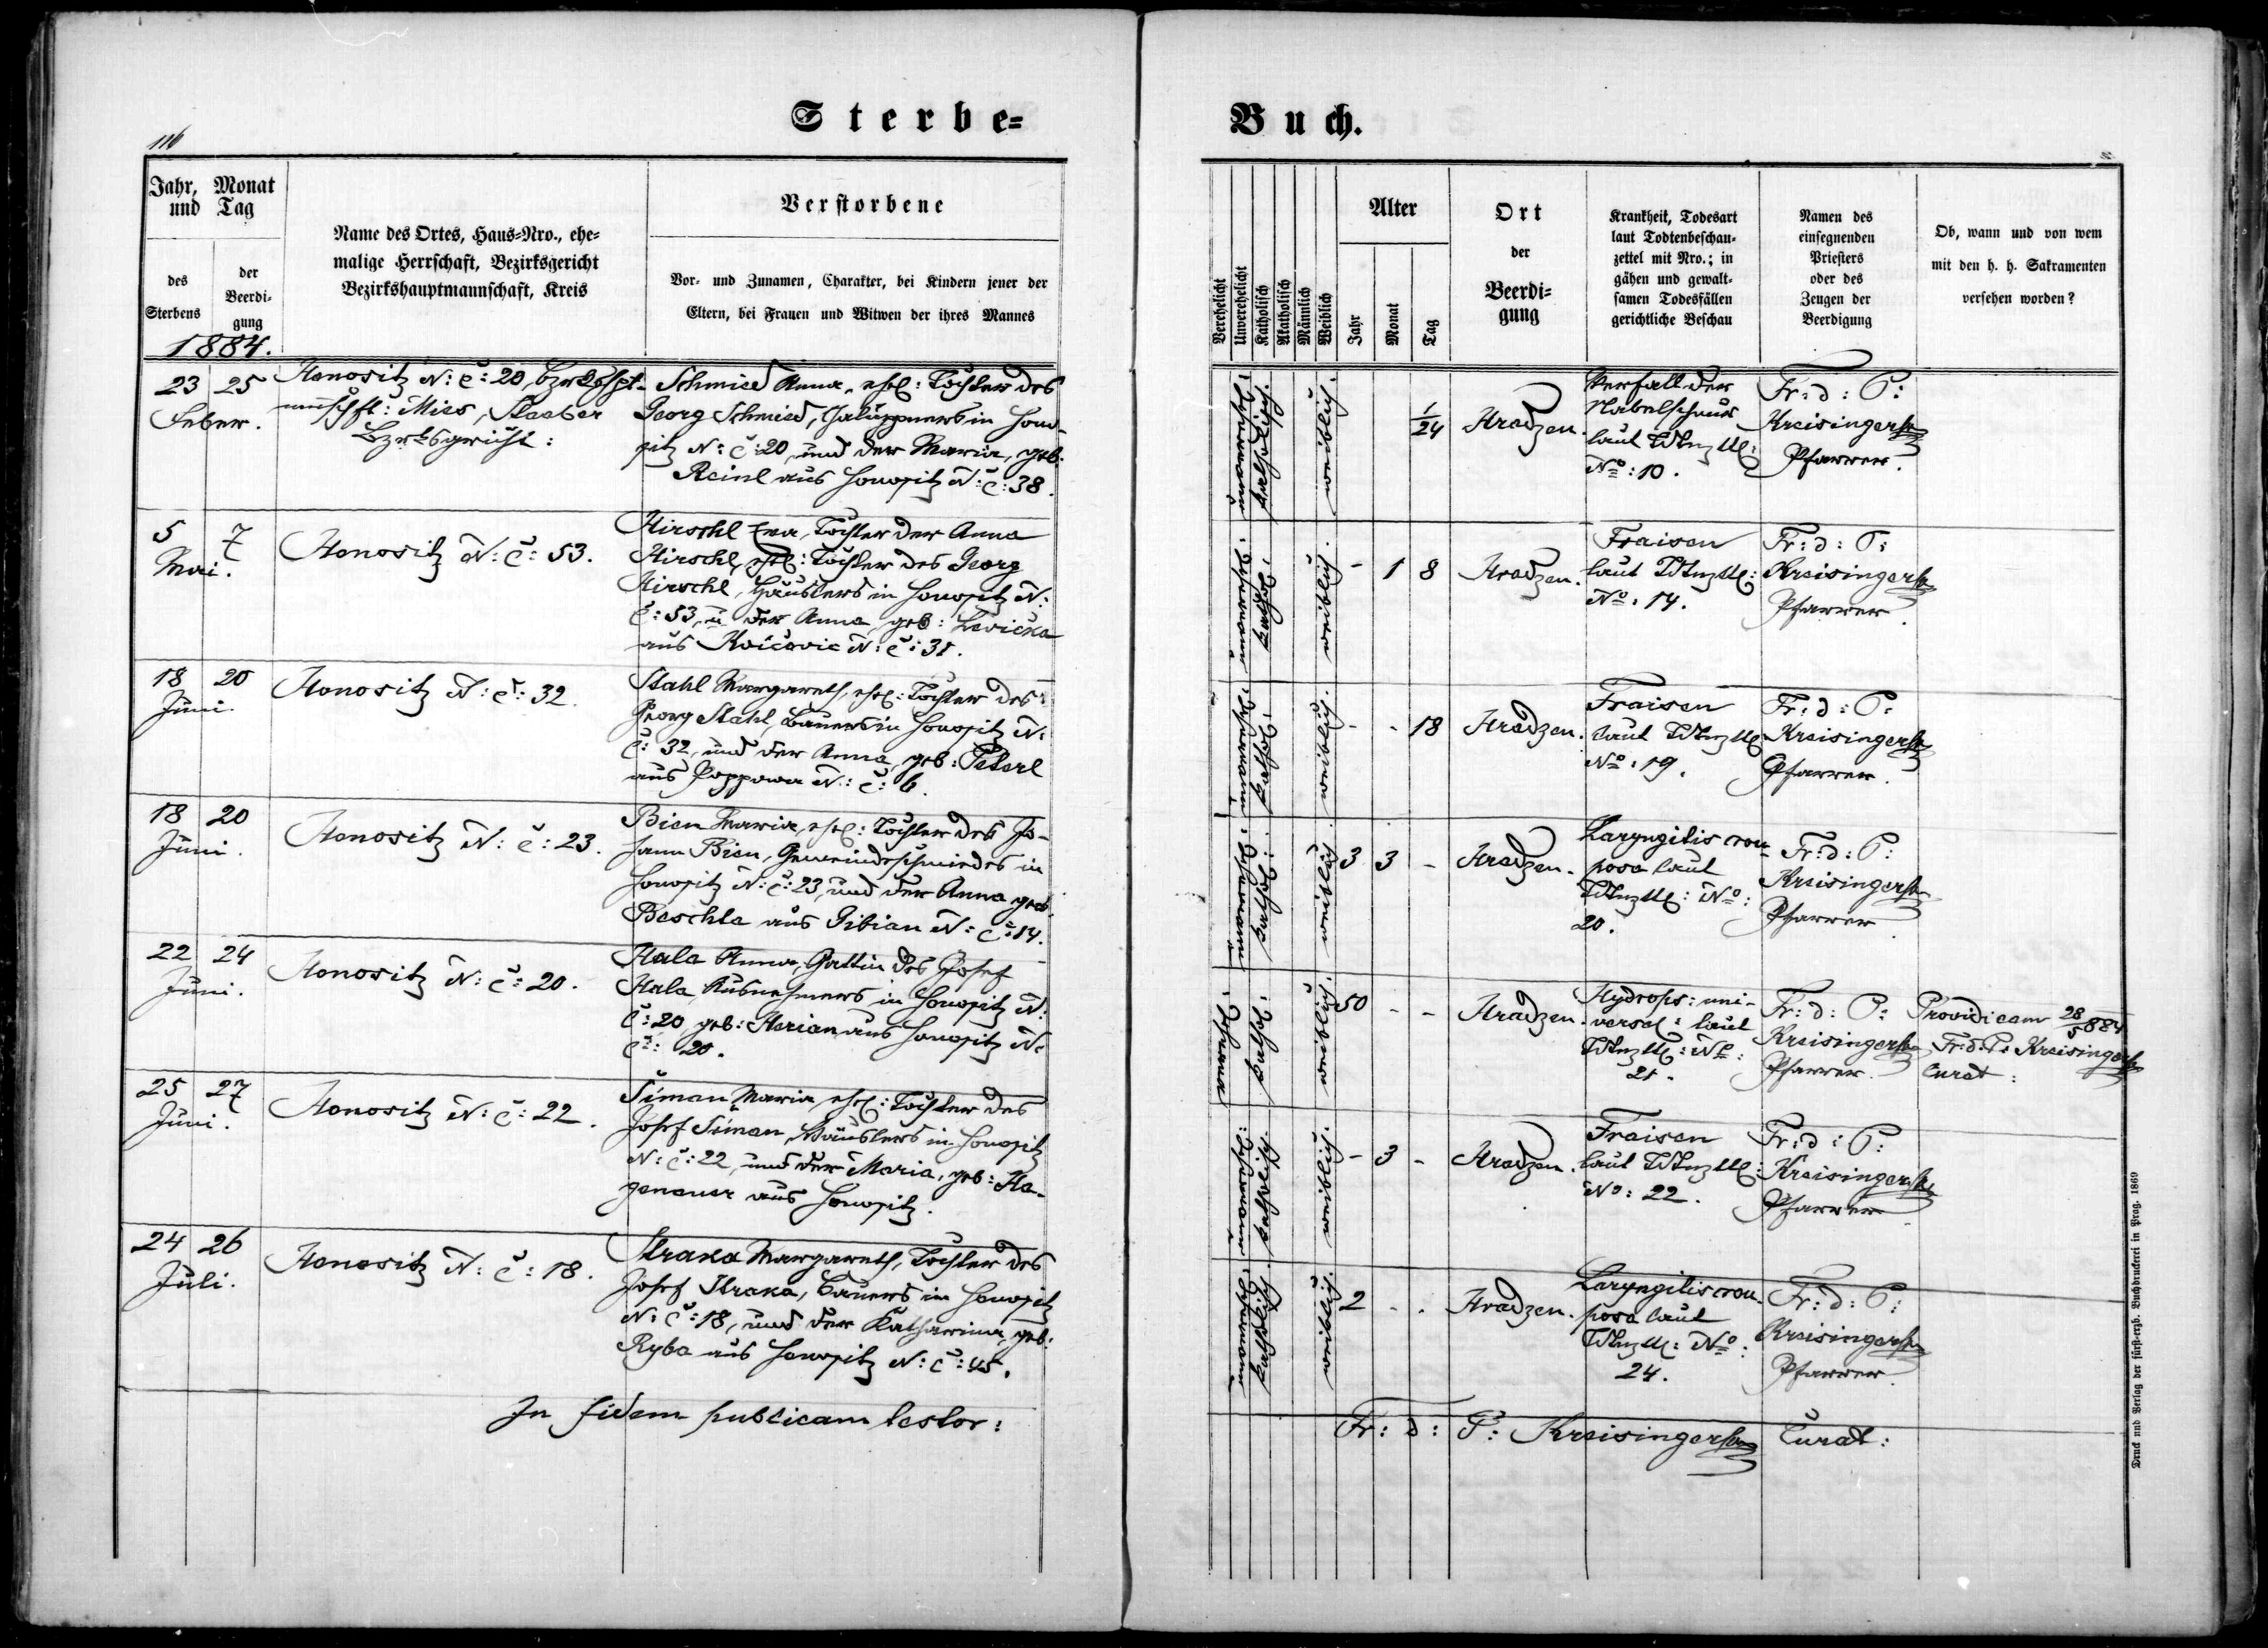 116
Sterbe=
Jahr, Monat
und Tag
des
Sterbens
der
Beerdi=
gung
Name des Ortes, Haus=Nro., ehe=
malige Herrschaft, Bezirksgericht
Bezirkshauptmannschaft, Kreis
Verstorbene
Vor- und Zunamen, Charakter, bei Kindern jener der
Eltern, bei Frauen und Witwen der ihres Mannes
1884.
23 25
Feber.
Honositz N: č: 20, Bzrkshpt-
mnschft: Mies, Staaber
Bzrksgericht:
Schmied Anna, ehel: Tochter des
Georg Schmied, Chaluppners in Hono-
sitz N: č: 20, und der Maria, geb:
Reinl aus Honositz N: č: 38.
5 7
Mai.
Honositz N: č: 53.
Hirschl Eva, Tochter der Anna
Hirschl, ehel: Tochter des Georg
Hirschl, Häuslers in Honositz N:
č: 53, u der Anna, geb: Levička
aus Kvičovic N: č: 31.
18 20
Juni.
Honositz N: č: 32.
Stahl Margareth, ehel: Tochter des
Georg Stahl, Bauers in Honositz N:
č: 32, und der Anna, geb: Peterl
aus Poppowa N: č: 6.
18 20
Juni.
Honositz N: č: 23.
Bien Maria, ehel: Tochter des Jo-
hann Bien, Gemeindeschmiedes in
Honositz N: č: 23, und der Anna geb.
Beschta aus Gibian N: č: 14.
22 24
Juni.
Honositz N: č: 20.
Hala Anna, Gattin des Josef
Hala, Ausnehmers in Honositz N:
č: 20, geb: Herian aus Honositz N:
č: 20.
25 27
Juni.
Honositz N: č: 22.
Šiman Maria, ehel: Tochter des
Josef Šiman, Häuslers in Honositz
N: č: 22, und der Maria, geb: Ha-
genauer aus Honositz.
24 26
Juli.
Honositz N: č: 18.
Straka Margareth, Tochter des
Josef Straka, Bauers in Honositz
N: č: 18, und der Katharina, geb:
Ryba aus Honositz N: č: 45.
In fidem publicam testor:
Buch.
Verehelicht
Unverehelicht
Katholisch
Akatholisch
Männlich
Weiblich
Alter
Jahr
Monat
Tag
Ort
der
Beerdi=
gung
Krankheit, Todesart
laut Todtenbeschau=
zettel mit Nro.; in
gähen und gewalt=
samen Todesfällen
gerichtliche Beschau
Namen des
einsegnenden
Priesters
oder des
Zeugen der
Beerdigung
Ob, wann und von wem
mit den h. h. Sakramenten
versehen worden?
katholisch.
weiblich.
1/24
Hradzen.
Verfall der
Nabelschnur
laut
No: 10.
Fr: d: P:
Kreisinger
Pfarrer.
kathol:
weiblich.
- 1 8
Hradzen.
Fraisen
laut
No: 14.
Fr: d: P:
Kreisinger
Pfarrer.
kathol:
weiblich.
- - 18
Hradzen.
Fraisen
laut
No: 19.
Fr: d: P:
Kreisinger
Pfarrer.
kathol:
weiblich
3 3 -
Hradzen.
Laryngitis crou-
posa laut
No:
20.
Fr: d: P:
Kreisinger
Pfarrer.
kathol:
weiblich.
50 - -
Hradzen.
Hydrops: uni-
versal: laut
No:
21.
Fr: d: P:
Kreisinger
Pfarrer.
Providi eam 28/5 884
Fr: d: P: Kreisinger
Curat:
katholisch.
weiblich.
- 3 -
Hradzen.
Fraisen
laut
No: 22.
Fr: d: P:
Kreisinger
Pfarrer.
katholisch
weiblich.
2 - -
Hradzen.
Laryngitis crou-
posa laut
No:
24.
Fr: d: P:
Kreisinger
Pfarrer.
Fr: d: P: Kreisinger Curat:
Druck und Verlag der fürst-erzb. Buchdruckerei in Prag. 1869